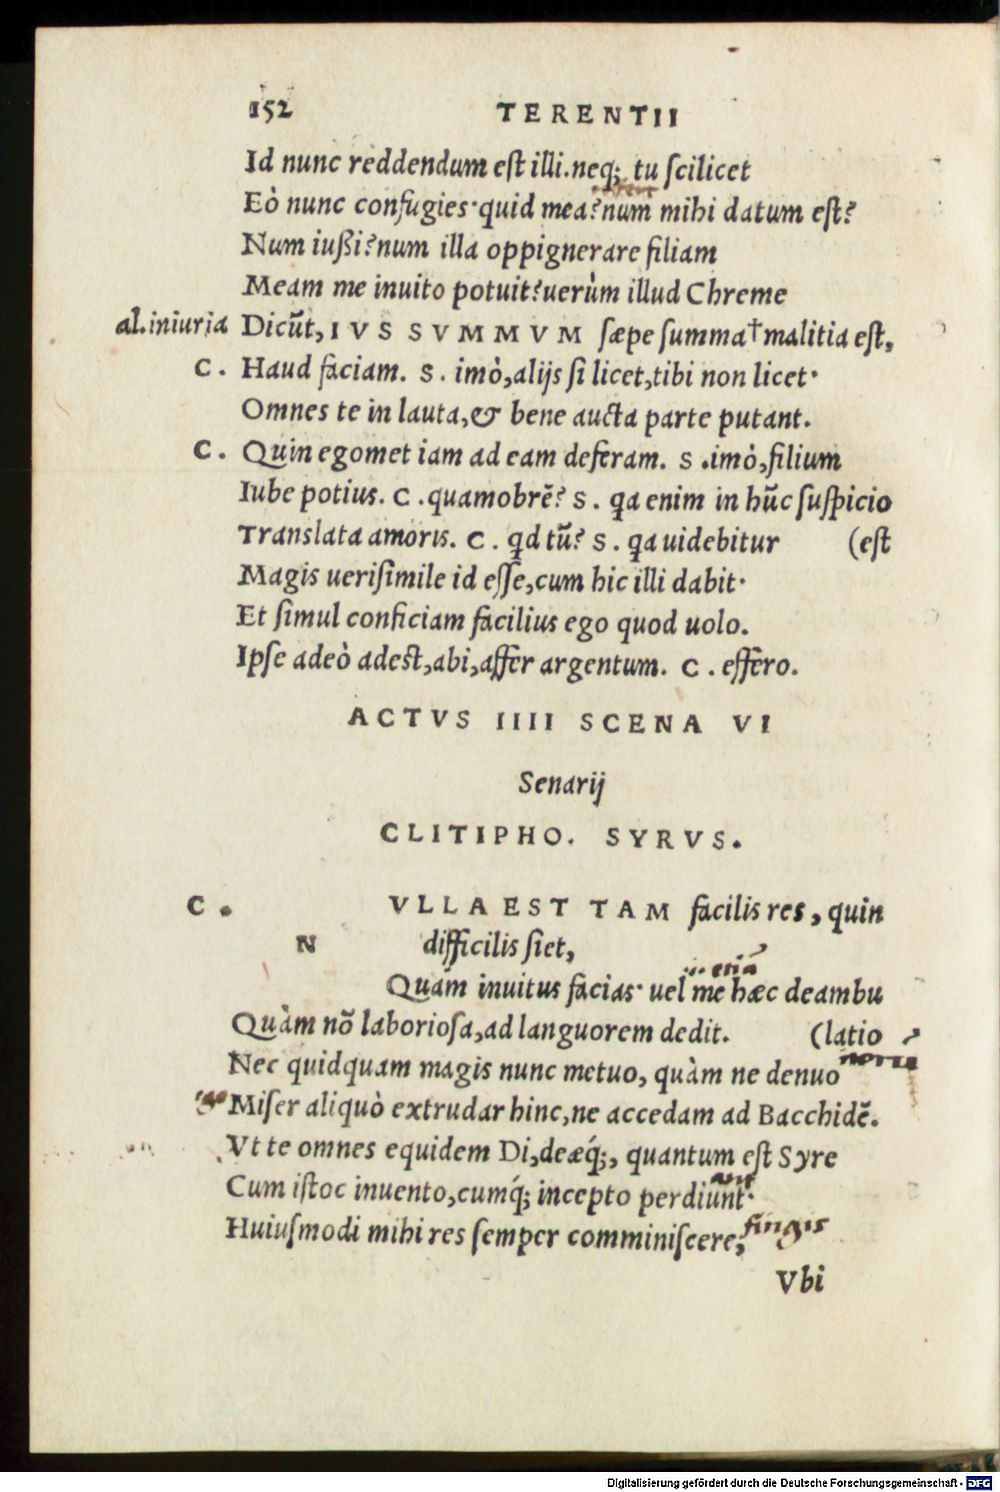 152 TERENTII
Id nunc reddendum eſt illi.neq; tu ſcilicet
Eò nunc confugies·quid mea?num mihi datum eſt?
Num iußi?num illa oppignerare filiam
Meam me inuito potuit?uerùm illud Chreme
al.iniuria Dicũt, IVS SVMMVM ſæpe ſumma†malitia eſt,
C. Haud faciam. S. imò,alijs ſi licet,tibi non licet·
Omnes te in lauta,& bene aucta parte putant.
C. Quin egomet iam ad eam deferam. S. imò,filium
Iube potius. C. quamobrẽ? S. qa enim in hũc ſuſpicio
Translata amoris. C. qd tũ? S. qa uidebitur (eſt
Magis ueriſimile id eſſe,cum hic illi dabit·
Et ſimul conficiam facilius ego quod uolo.
Ipſe adeò adest,abi,affer argentum. C. effero.
ACTVS IIII SCENA VI
Senarij
CLITIPHO. SYRVS.
C. VLLA EST TAM facilis res, quin
N difficilis ſiet,
etiã
Quám inuitus facias· uel me hæc deambu
Quàm nõ laborioſa,ad languorem dedit. (latio
Nec quidquam magis nunc metuo, quàm ne denuo
Miſer aliquò extrudar hinc,ne accedam ad Bacchidẽ.
Vt te omnes equidem Di,deæq́;, quantum eſt Syre
Cum iſtoc inuento,cumq́; incepto perdiunt·
Huiuſmodi mihi res ſemper comminiſcere, fingis
Vbi
Digitalisierung gefördert durch die Deutsche Forschungsgemeinschaft - DFG